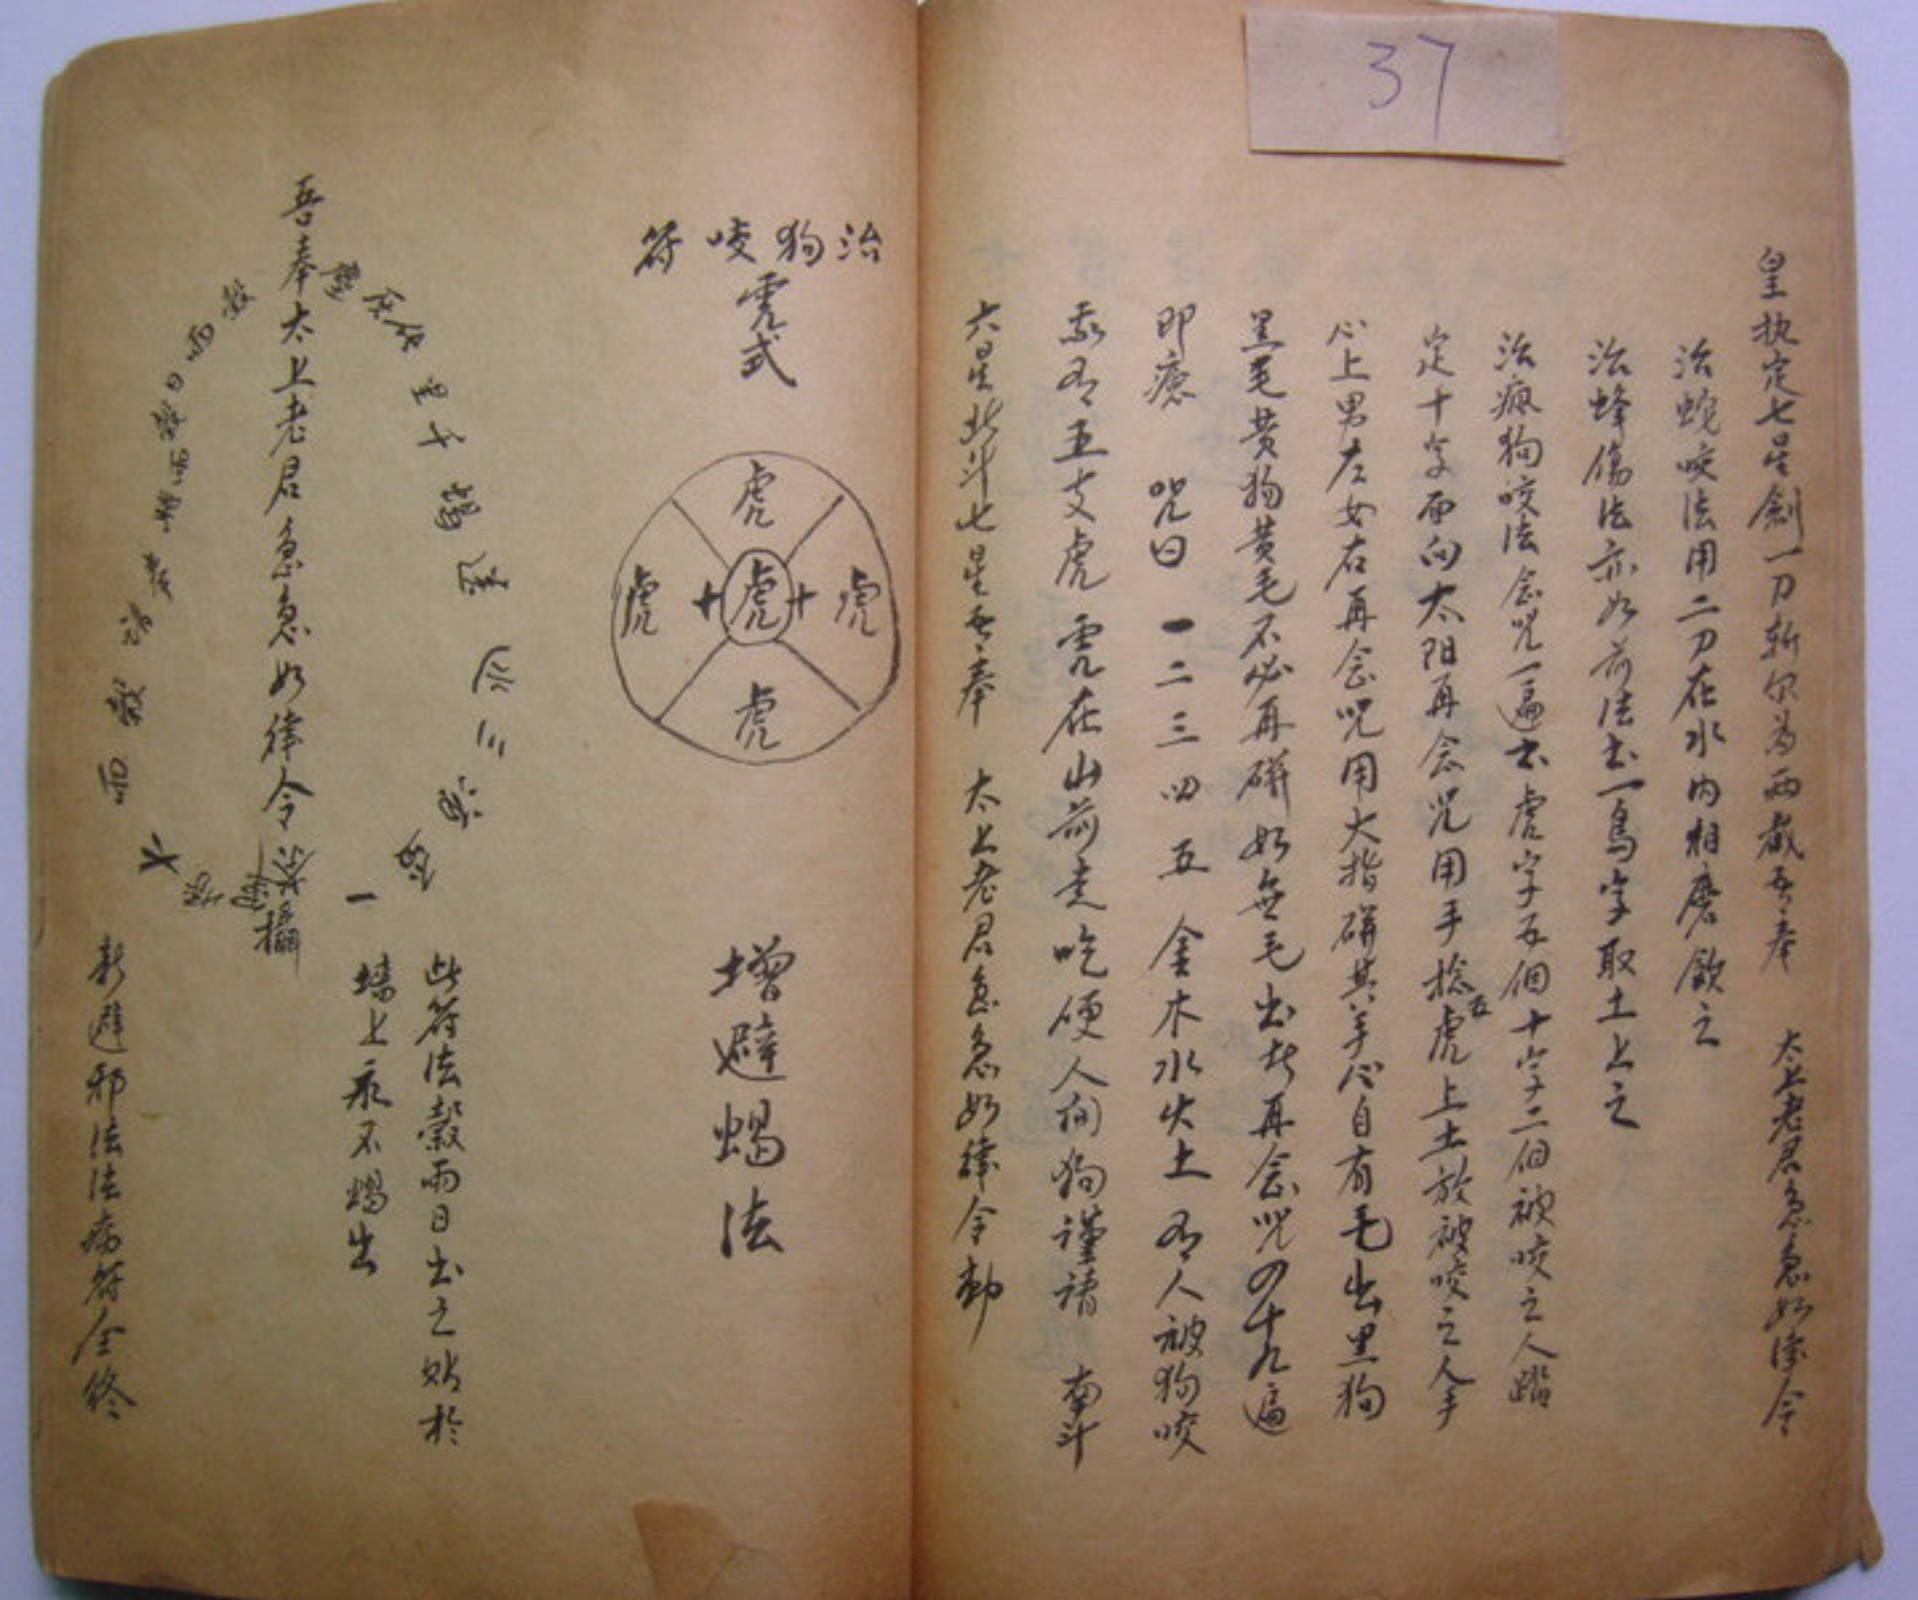 37
皇执定七星劍一刀斬尔為两截吾奉 太上老君急急如律令
治蛇咬法用二刀在水内相磨飲之
治蜂傷法亦如前法出一鳥字取土上之
治瘋狗咬法念咒一遍去虎字五個十字二個被咬之人踏
定十字面向太阳再念咒用手捻五虎上土放被咬之人手
心上男左女右再念咒用大指研其手心自有毛出黑狗
黑毛黄狗黄毛不必再研如無毛出者再念咒四十九遍
即癒 咒曰 一二三四五 金木水火土 有人被狗咬
我有五支虎 虎在山前走吃便人间狗謹請 南斗
六星北斗七星吾奉 太上老君急急如律令勅
治狗咬符
虎式
虎
虎 十 虎 十 虎
虎
增避蝎法
此符法穀雨日出之贴於
一墙上永不蝎出
吾奉太上老君急急如律令
攝
新避邪法法病符全终